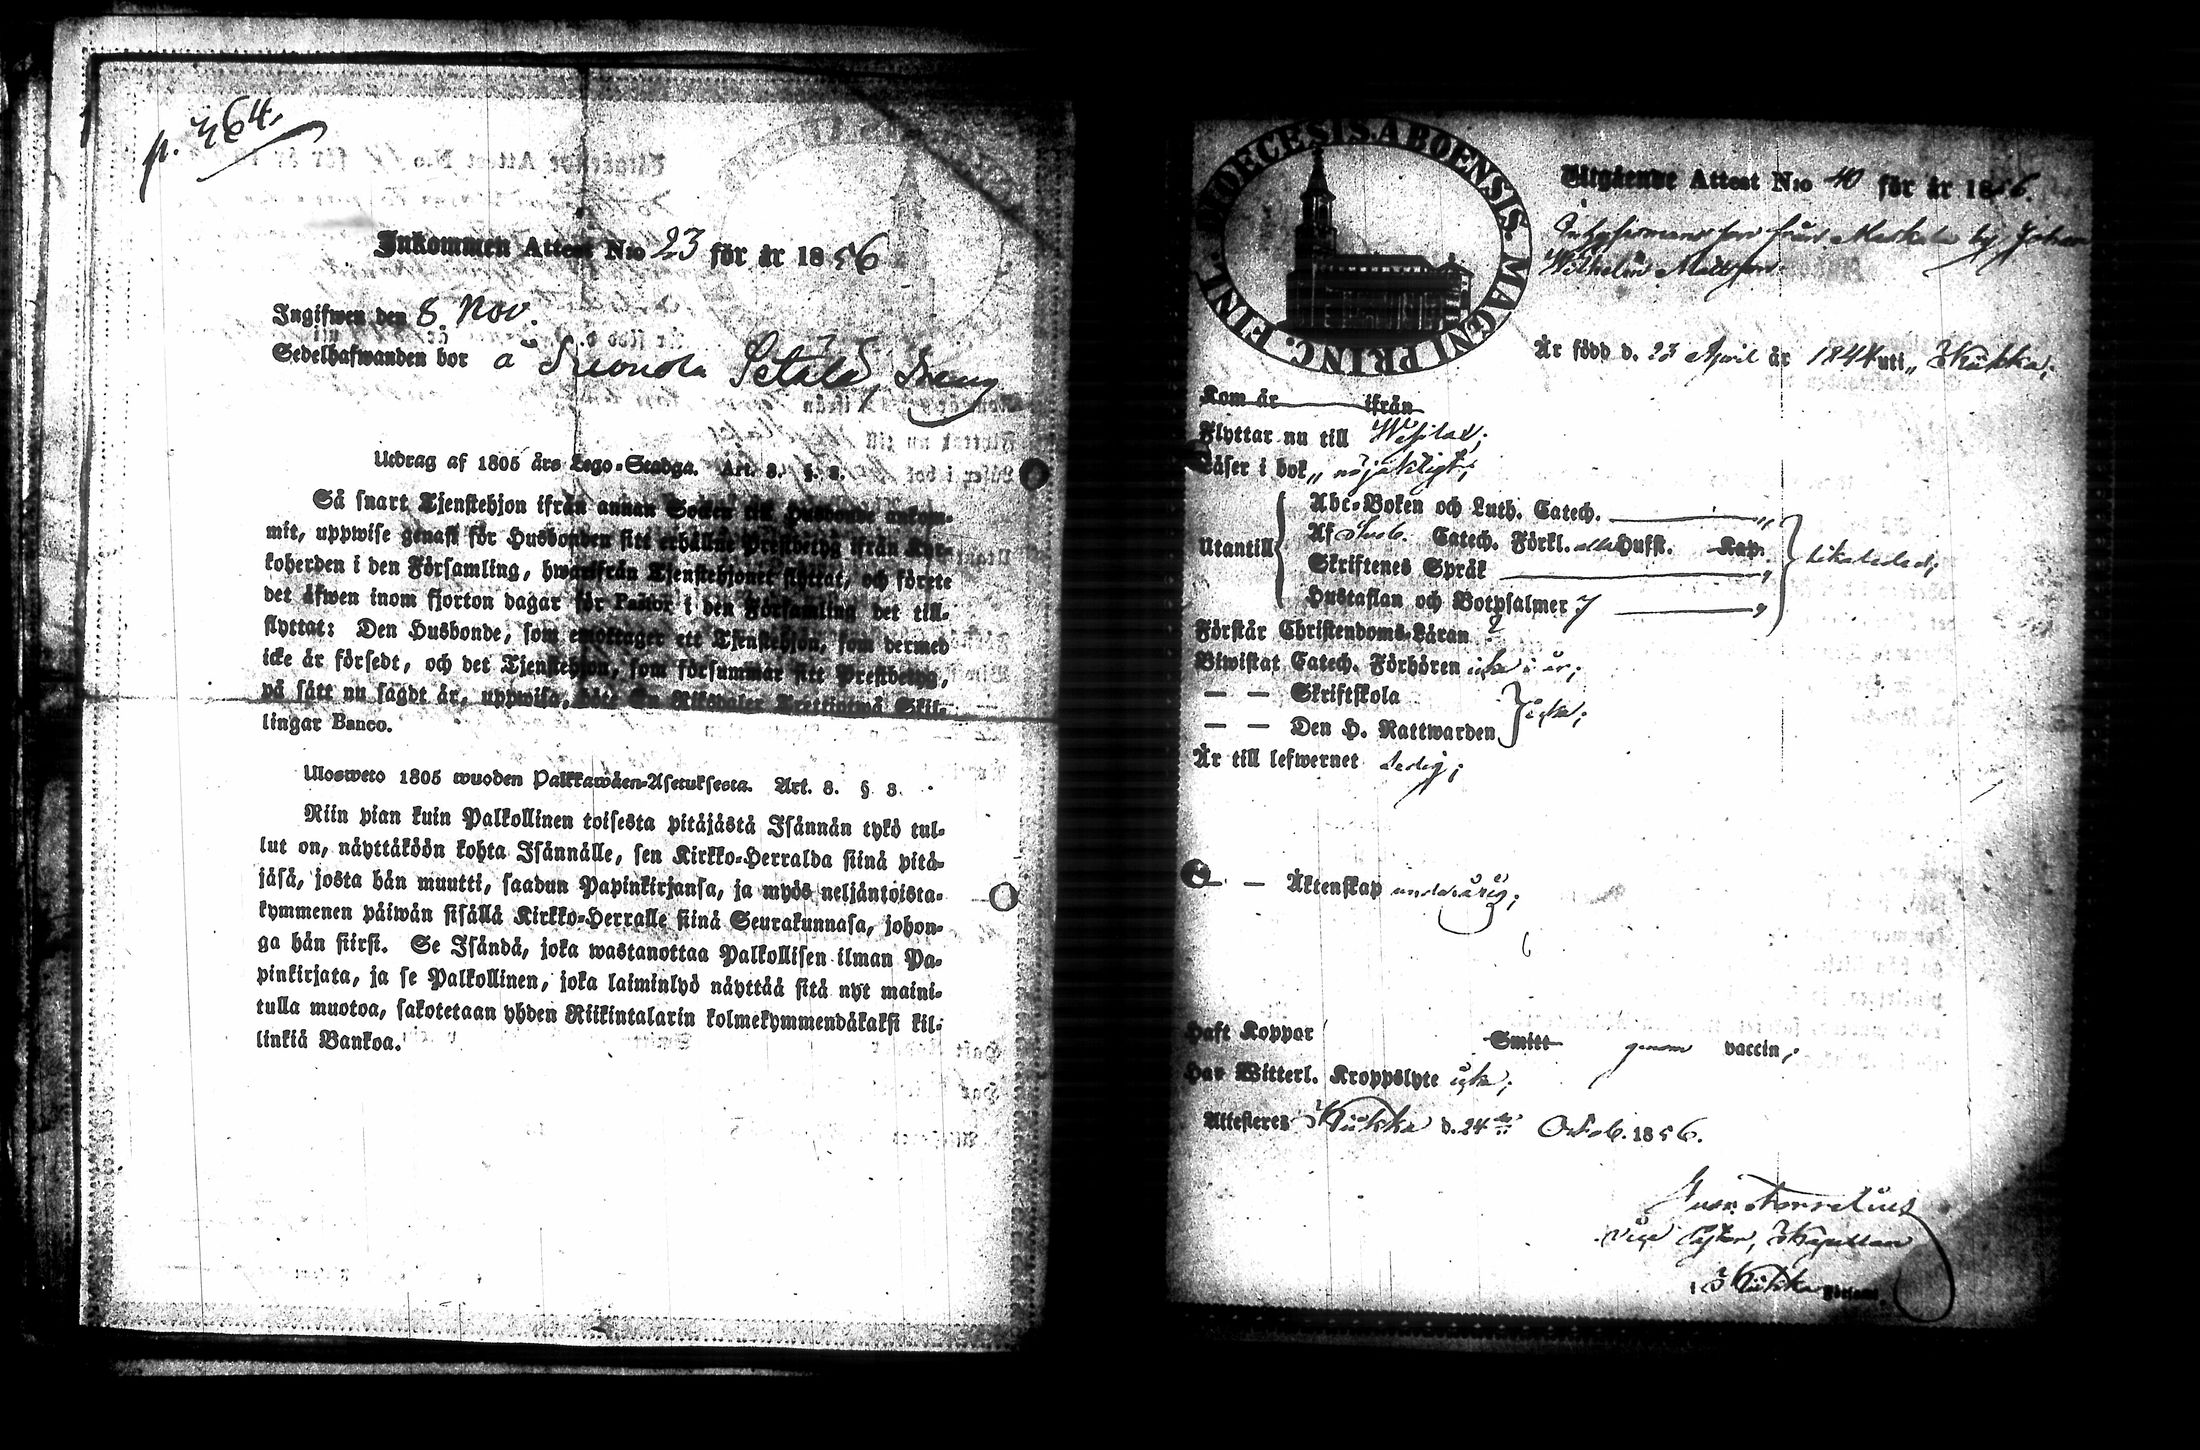 p. 464.
Inkommen Attest N:o 23 för år 1856
Ingifwen den 8 Nov.
Sedelhafwanden bor å Setälä, Dräng
Utdrag af 1805 års Lego-Stadga. Art. 8. §. 8.
Så snart Tjenstehjon ifrån annan Socken till Husbonde ankom-
mit, uppwise genast för Husbonden sitt erhållne Prestbetyg ifrån Kyr-
koherden i den Församling, hwarifrån Tjenstehjonet flyttat, och förete
det äfwen inom fjorton dagar för Pastor i den Församling det till-
flyttat: Den Husbonde, som emottager ett Tjenstehjon, som dermed
icke är försedt, och det Tjenstehjon, som försummar sitt Prestbetyg,
på sätt nu sagdt är, uppwisa, böte En Riksdaler Trettiotwå Skil-
lingar Banco.
Ulosweto 1805 wuoden Palkkawäen-Asetuksesta. Art. 8. § 8.
Niin pian kuin Palkollinen toisesta pitäjästä Isännän tykö tul-
lut on, näyttäköön kohta Isännälle, sen Kirkko-Herralda siinä pitä-
jäsä, josta hän muutti, saadun Papinkirjansa, ja myös neljäntoista-
kymmenen päiwän sisällä Kirkko-Herralle siinä Seurakunnasa, johon-
ga hän siirsi. Se Isändä, joka wastanottaa Palkollisen ilman Pa-
pinkirjata, ja se Palkollinen, joka laiminlyö näyttää sitä nyt maini-
tulla muotoa, sakotetaan yhden Riikintalarin kolmekymmendäkaksi kil-
linkiä Bankoa.
DIOECESIS. ABOENSIS. MAGNI PRINC. FINL.
Utgående Attest N:o 40 för år 1856.
från by, Johan
Wilhelm Mattsson
Är född d. 23 April år 1844 uti Kiikka;
Kom år ifrån
Flyttar nu till
Läser i bok nöjaktigt;
Utantill
Abc-Boken och Luth. Catech. "
Af Sveb. Catech. Förkl. eller Hufst. Kap.
Skriftenes Språk "
Hustaflan och Botpsalmer 7 "
likaledes;
Förstår Christendoms-Läran
Biwistat Catech. Förhören icke i år;
— — Skriftskola
— — Den H. Nattwarden
icke;
Är till lefwernet ledig;
— — Äktenskap underårig;
Haft Koppor Smitt genom vaccin;
Har Witterl. Kroppslyte icke;
Attesteres Kiikka d. 24 Octob. 1856.
vice Pastor, Kapellan
i Kiikka Församl.